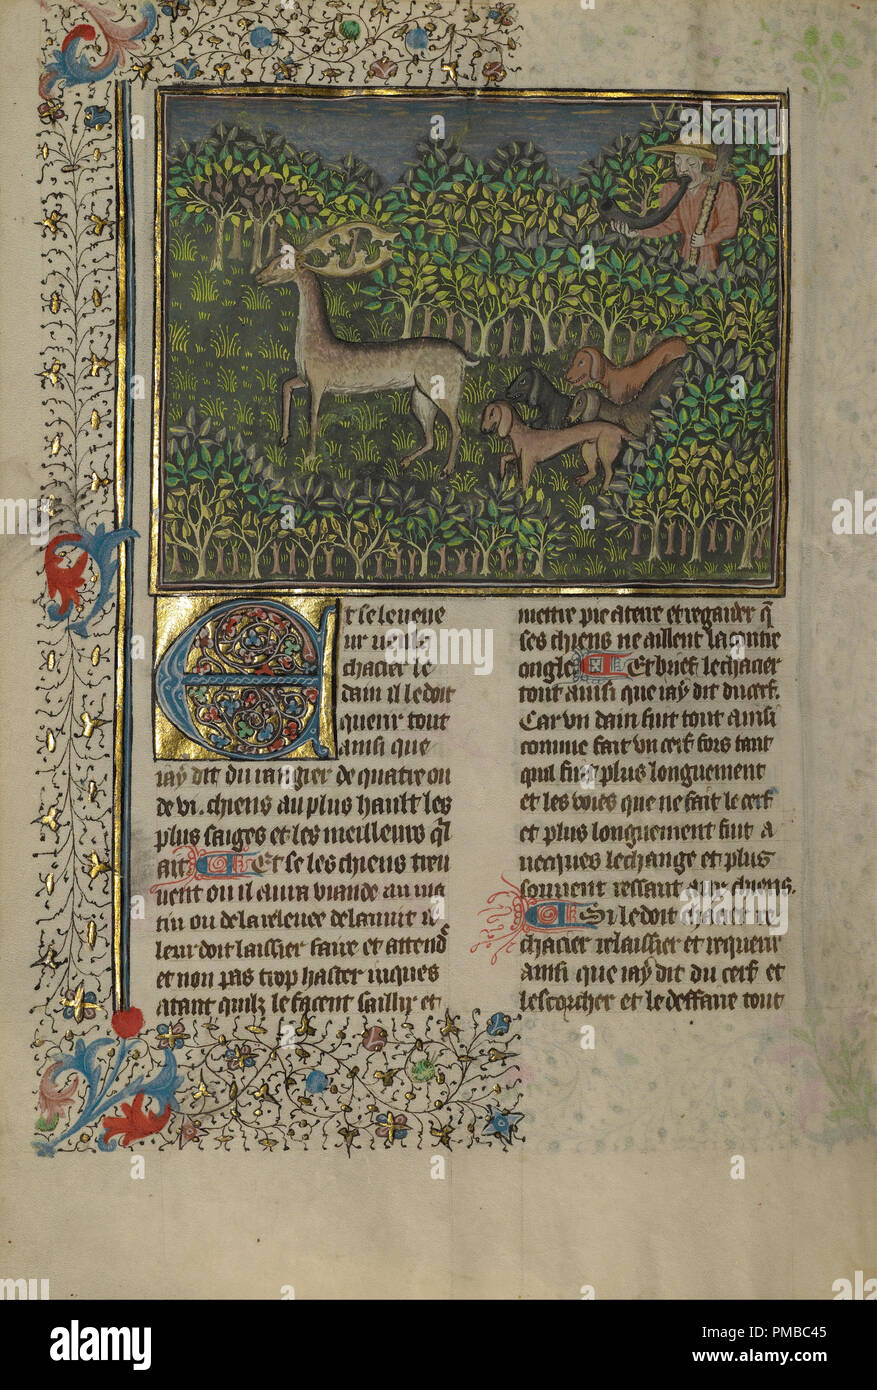 Et se le veneur
veult
chacier le
dain il le doit
querir tout
ainsi que
iay dit du rangier de quatre ou
de vi. chiens au plus hault les
plus saiges et les meilleurs ql
ait Et se les chiens treu
uent ou il aura viande au ma
tin ou de la releuee de la nuit il
leur doit laissier faire et attendr
et non pas trop haster iusques
atant quilz le facent saillir et
mettre pie a terre et regarder q
ses chiens ne aillent la contre
ongle Et brief le chacier
tout ainsi que iay dit du cerf.
Car vn dain fuit tout ainsi
comme fait vn cerf fors tant
quil fuit plus longuement
et les voies que ne fait le cerf
et plus longuement fuit a
uecques le change et plus
souuent ressaut aux chiens.
Si le doit chacier re
chacier relaissier et requerir
ainsi que iay dit du cerf et
lescorcher et le deffaire tout
alamy
Image ID: PMBC45
www.alamy.com